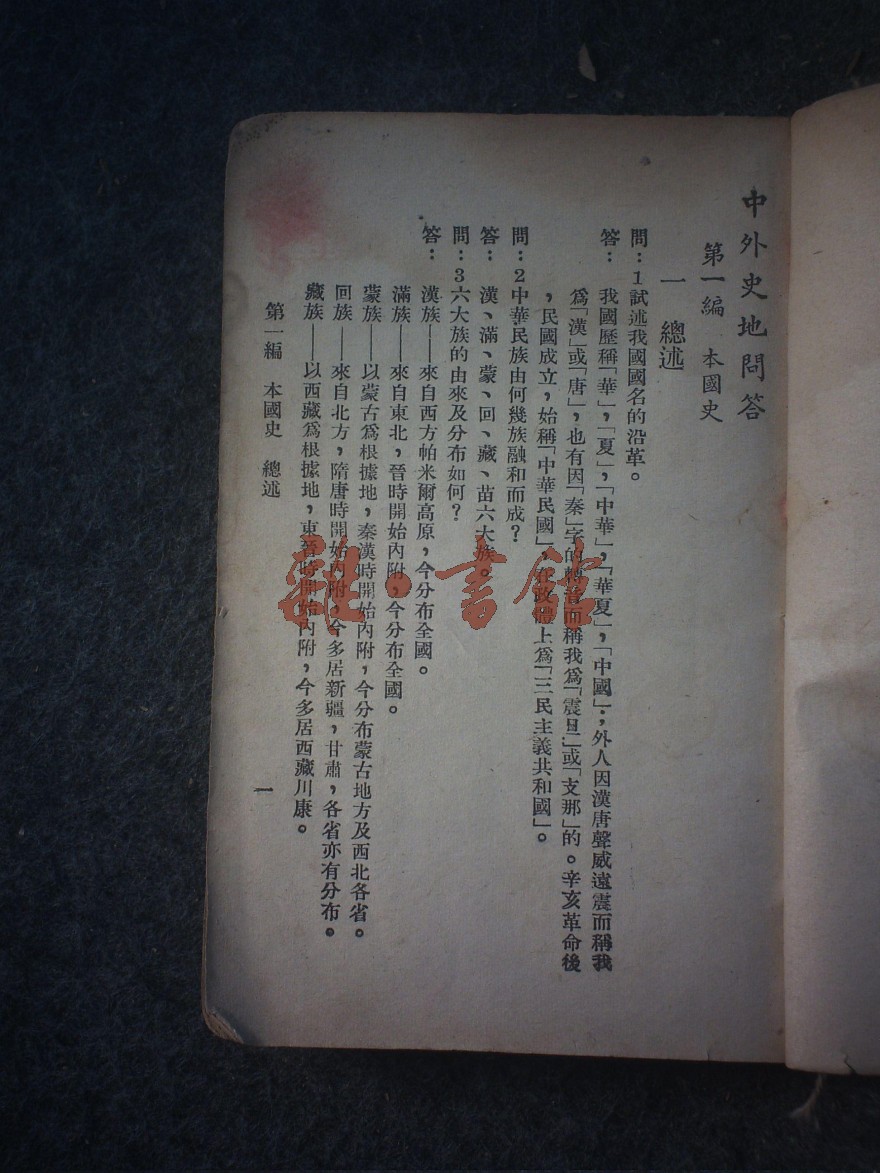 中外史地問答
第一編 本國史
一 總述
問：1試述我國國名的沿革。
答：我國歷稱「華」，「夏」，「中華」，「華夏」，「中國」；外人因漢唐聲威遠震而稱我
爲「漢」或「唐」，也有因「秦」字的轉音而稱我爲「震旦」或「支那」的。辛亥革命後
，民國成立，始稱「中華民國」，在政體上爲「三民主義共和國」。
問：2中華民族由何幾族融和而成？
答：漢、滿、蒙、回、藏、苗六大族。
問：3六大族的由來及分布如何？
答：漢族——來自西方帕米爾高原，今分布全國。
滿族——來自東北，晉時開始內附，今分布全國。
蒙族——以蒙古爲根據地，秦漢時開始內附，今分布蒙古地方及西北各省。
回族——來自北方，隋唐時開始內附，今多居新疆，甘肅，各省亦有分布。
藏族——以西藏爲根據地，東晉時開始內附，今多居西藏川康。
第一編 本國史 總述
一
雜·書館